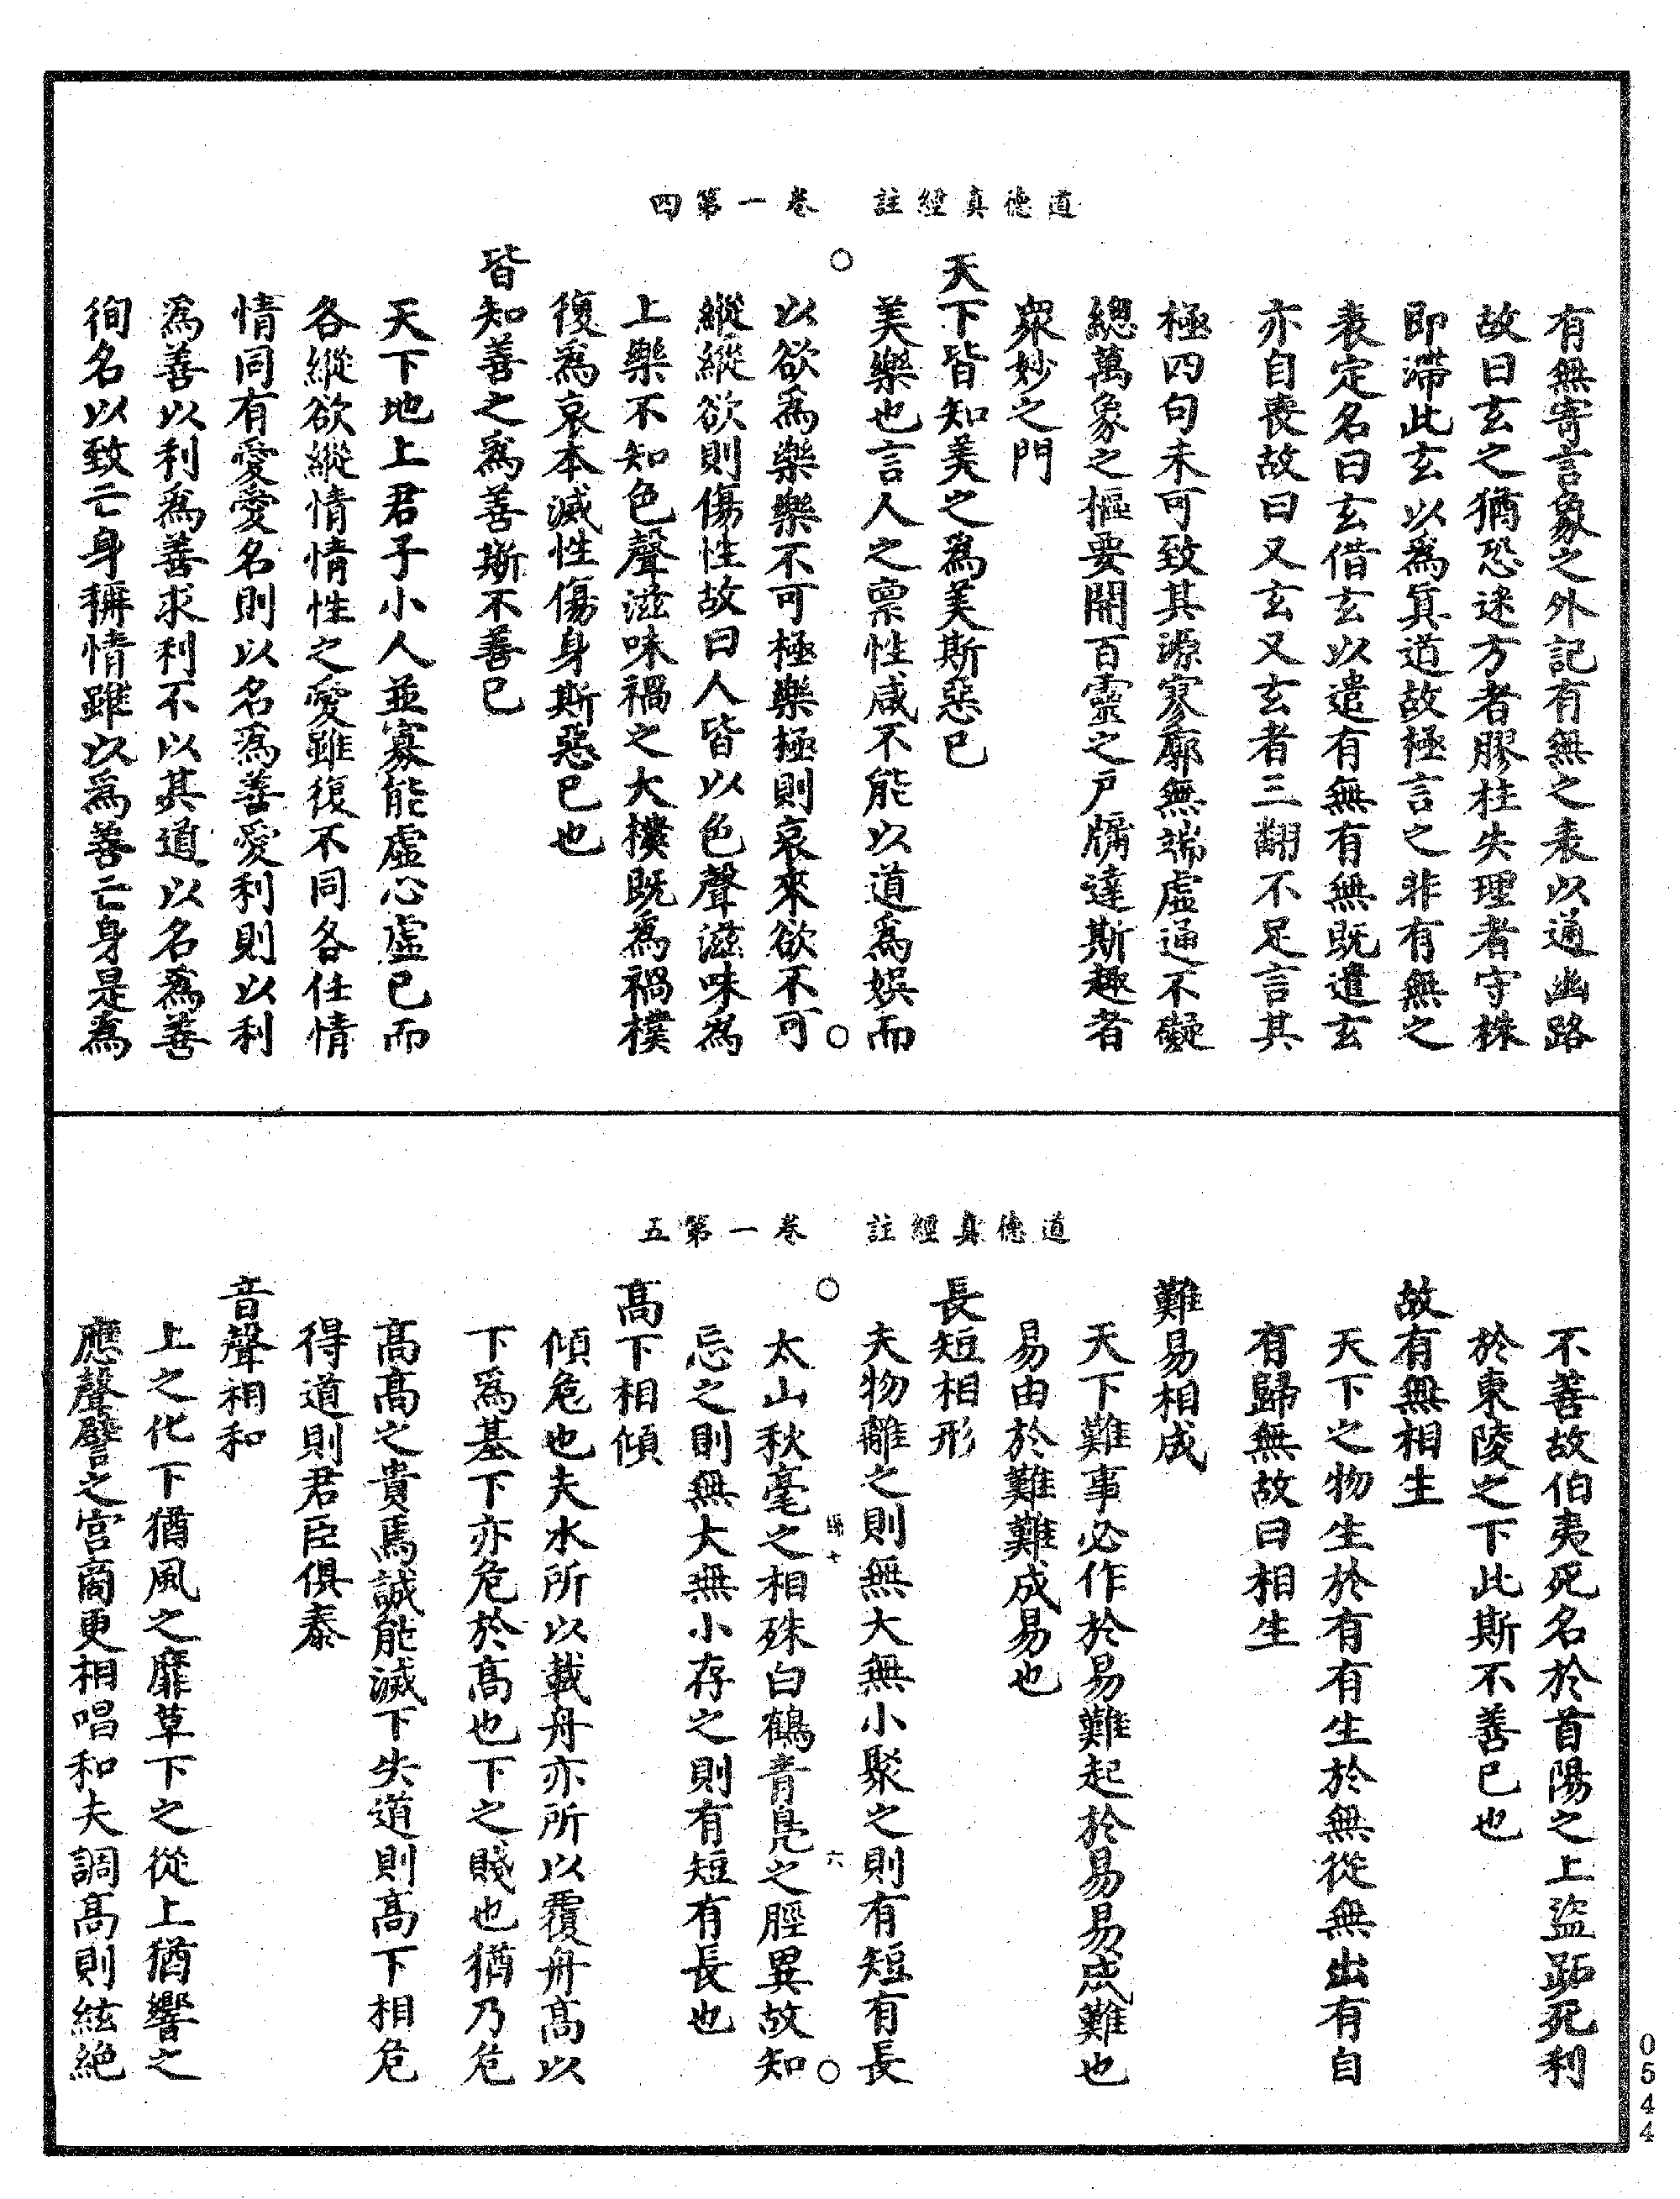 道德真經註　卷一第四
有無寄言象之外記有無之表以通幽路
故曰玄之猶恐迷方者膠柱失理者守株
即滯此玄以為真道故極言之非有無之
表定名曰玄借玄以遣有無有無既遣玄
亦自喪故曰又玄又玄者三翻不足言其
極四句未可致其源寥廓無端虛通不礙
總萬象之樞要開百靈之戶牖達斯趣者
衆妙之門
天下皆知美之為美斯惡已
美樂也言人之稟性咸不能以道為娛而
以欲為樂樂不可極樂極則哀來欲不可
縱縱欲則傷性故曰人皆以色聲滋味為
上樂不知色聲滋味禍之大樸既為禍樸
復為哀本滅性傷身斯惡已也
皆知善之為善斯不善已
天下地上君子小人並寡能虛心虛已而
各縱欲縱情情性之愛雖復不同各任情
情同有愛愛名則以名為善愛利則以利
為善以利為善求利不以其道以名為善
徇名以致亡身猶情雖以為善亡身是為
道德真經註　卷一第五
不善故伯夷死名於首陽之上盜跖死利
於東陵之下此斯不善已也
故有無相生
天下之物生於有有生於無從無出有自
有歸無故曰相生
難易相成
天下難事必作於易難起於易易成難也
易由於難難成易也
長短相形
夫物離之則無大無小聚之則有短有長
太山秋毫之相殊白鶴青鳧之脛異故知
忘之則無大無小存之則有短有長也
高下相傾
傾危也夫水所以載舟亦所以覆舟高以
下為基下亦危於高也下之賤也猶乃危
高高之貴焉誠能滅下失道則高下相危
得道則君臣俱泰
音聲相和
上之化下猶風之靡草下之從上猶響之
應聲譬之宮商更相唱和夫調高則絃絕
十
六
0544